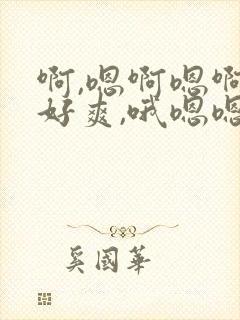 啊,嗯啊嗯啊
好爽,哦嗯嗯
奚國華